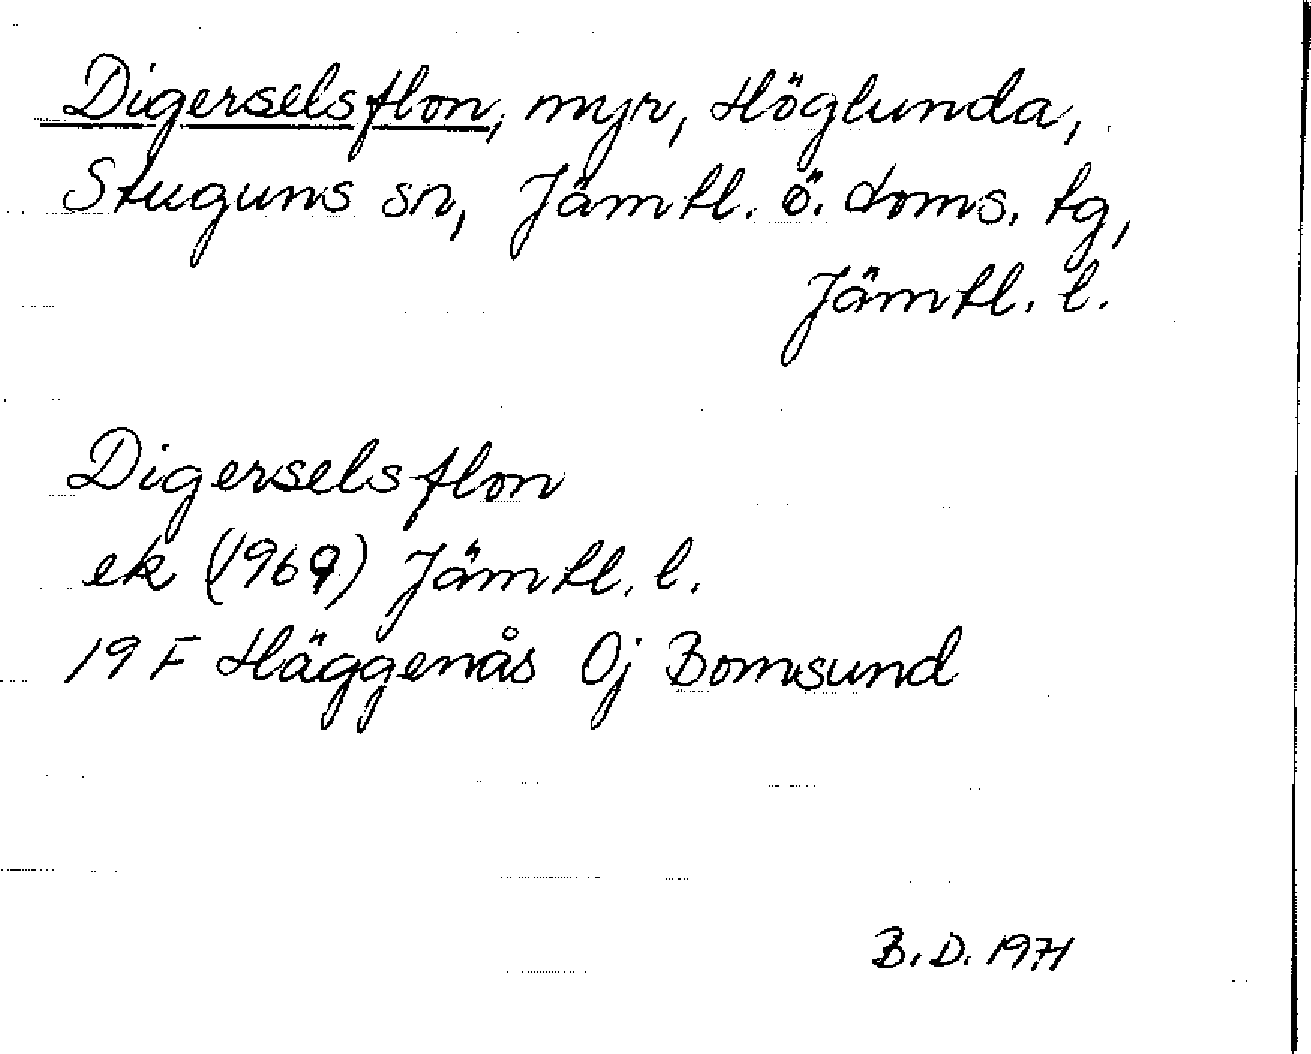 Digerselsflon, myr, Höglunda,
Stuguns sn, Jämtl. ö. doms. tg,
Jämtl. l.
Digerselsflon
ek (1969) Jämtl. l.
19 F Häggenås 0j Bomsund
B. D. 1971